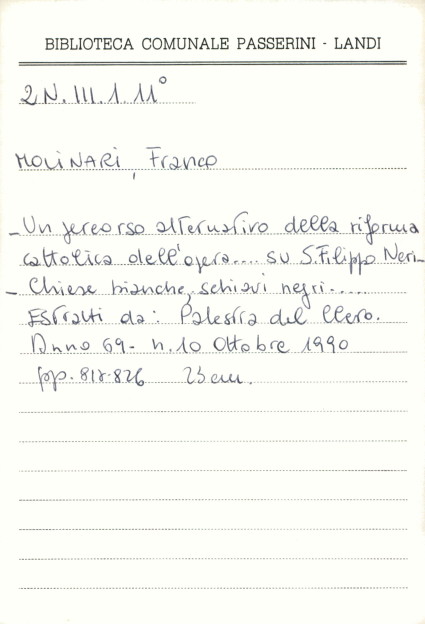 BIBLIOTECA COMUNALE PASSERINI - LANDI
2 N. III. 1. 11°
MOLINARI, Franco
- Un percorso alternativo della riforma
cattolica dell'opera.... su S. Filippo Neri -
- Chiese bianche, schiavi negri.....
Estratti da: Palestra del Clero.
Anno 69 - n. 10 Ottobre 1990
pp. 818-826 23 cm.